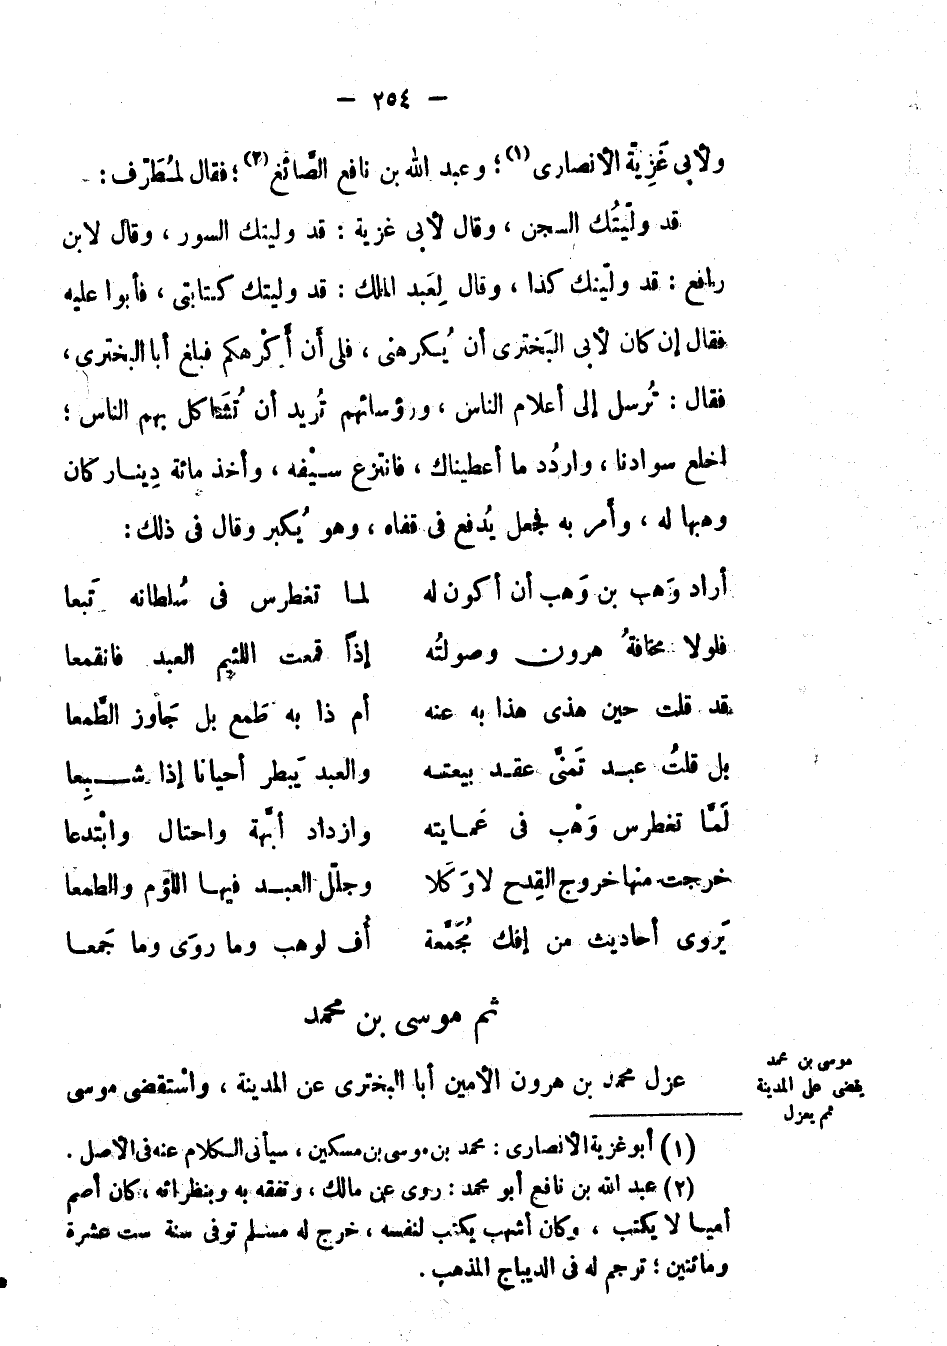 — ٢٥٤ —
ولأبي غَزِيَّة الأنصارى(١)؛ وعبد الله بن نافع الصَّائغ(٢)؛ فقال لمُطَرِّف :
قد ولّيتُك السجن ، وقال لأبى غزية : قد وليتك السور ، وقال لابن
رافع : قد ولّيتك كذا ، وقال لِعَبد الملك : قد وليتك كتابتى ، فأبوا عليه
فقال إن كان لأبى البَخترى أن يُكرهنى ، فلى أَن أُكْرهكم فبلغ أبا البخترى ،
فقال : تُرسل إلى أعلام الناس ، ورؤسائهم تُريد أن تُشَاكل بهم الناس ؛
اخلع سوادنا ، واردُد ما أعطيناك ، فانتزع سيْفه ، وأخذ مائة دِينار كان
وهبها له ، وأَمر به فجعل يُدفع فى قفاه ، وهو يُكبر وقال فى ذلك :
أراد وَهب بن وَهب أن أكون له لما تغطرس فى سُلطانه تَبعا
فلولا مخافةُ هرون وصولتُه إذاً قمعت اللئيم العبد فانقمعا
قد قلت حين هذى هذا به عنه أم ذا به طَمع بل جَاوز الطَّمعا
بل قلتُ عبد تَمنَّى عقد بيعته والعبد يَبطر أحيانا إذا شبِعا
لَمَّا تغطرس وَهْب فى عَمايته وازداد أبَّهة واحتال وابْتدعا
خرجت منها خروج القِدح لا وَكَلا وجلّل العبد فيها اللؤم والطمعا
يَروى أحاديث من إفك مُجَمَّعة أُف لوهب وما روَى وما جَمعا
ثم موسى بن محمد
موسى بن محمد
يقضى على المدينة
ثم يعزل
عزل محمد بن هرون الأمين أبا البخترى عن المدينة ، واسْتقضى موسى
(١) أبو غزية الأنصارى : محمد بن موسى بن مسكين ، سيأتى الكلام عنه فى الأصل .
(٢) عبد الله بن نافع أبو محمد : روى عن مالك ، وتفقه به وبنظرائه ، كان أصم
أميا لا يكتب ، وكان أشهب يكتب لنفسه ، خرج له مسلم توفى سنة ست عشرة
ومائتين ؛ ترجم له فى الديباج المذهب .